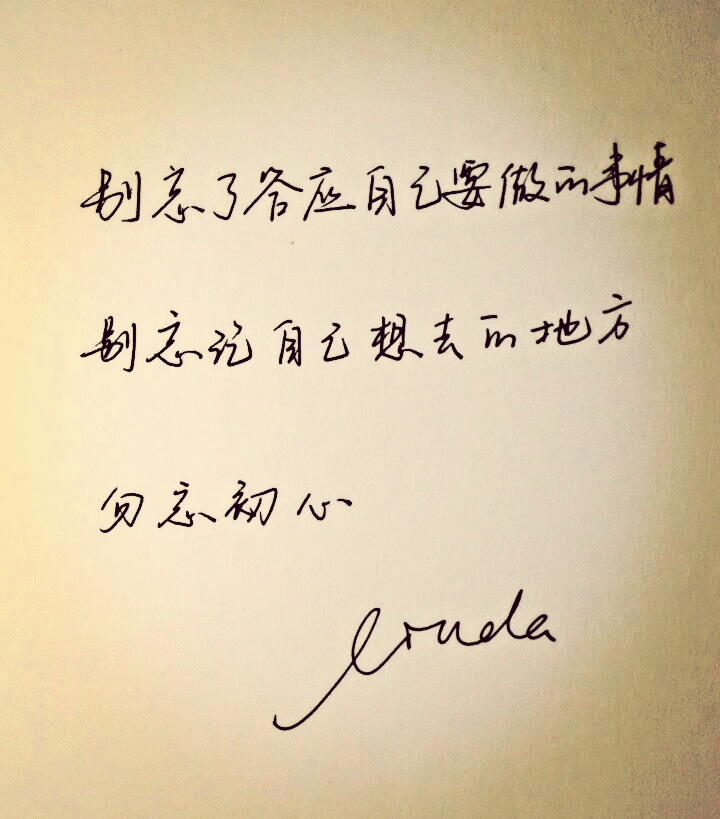 别忘了答应自己要做的事情
别忘记自己想去的地方
勿忘初心